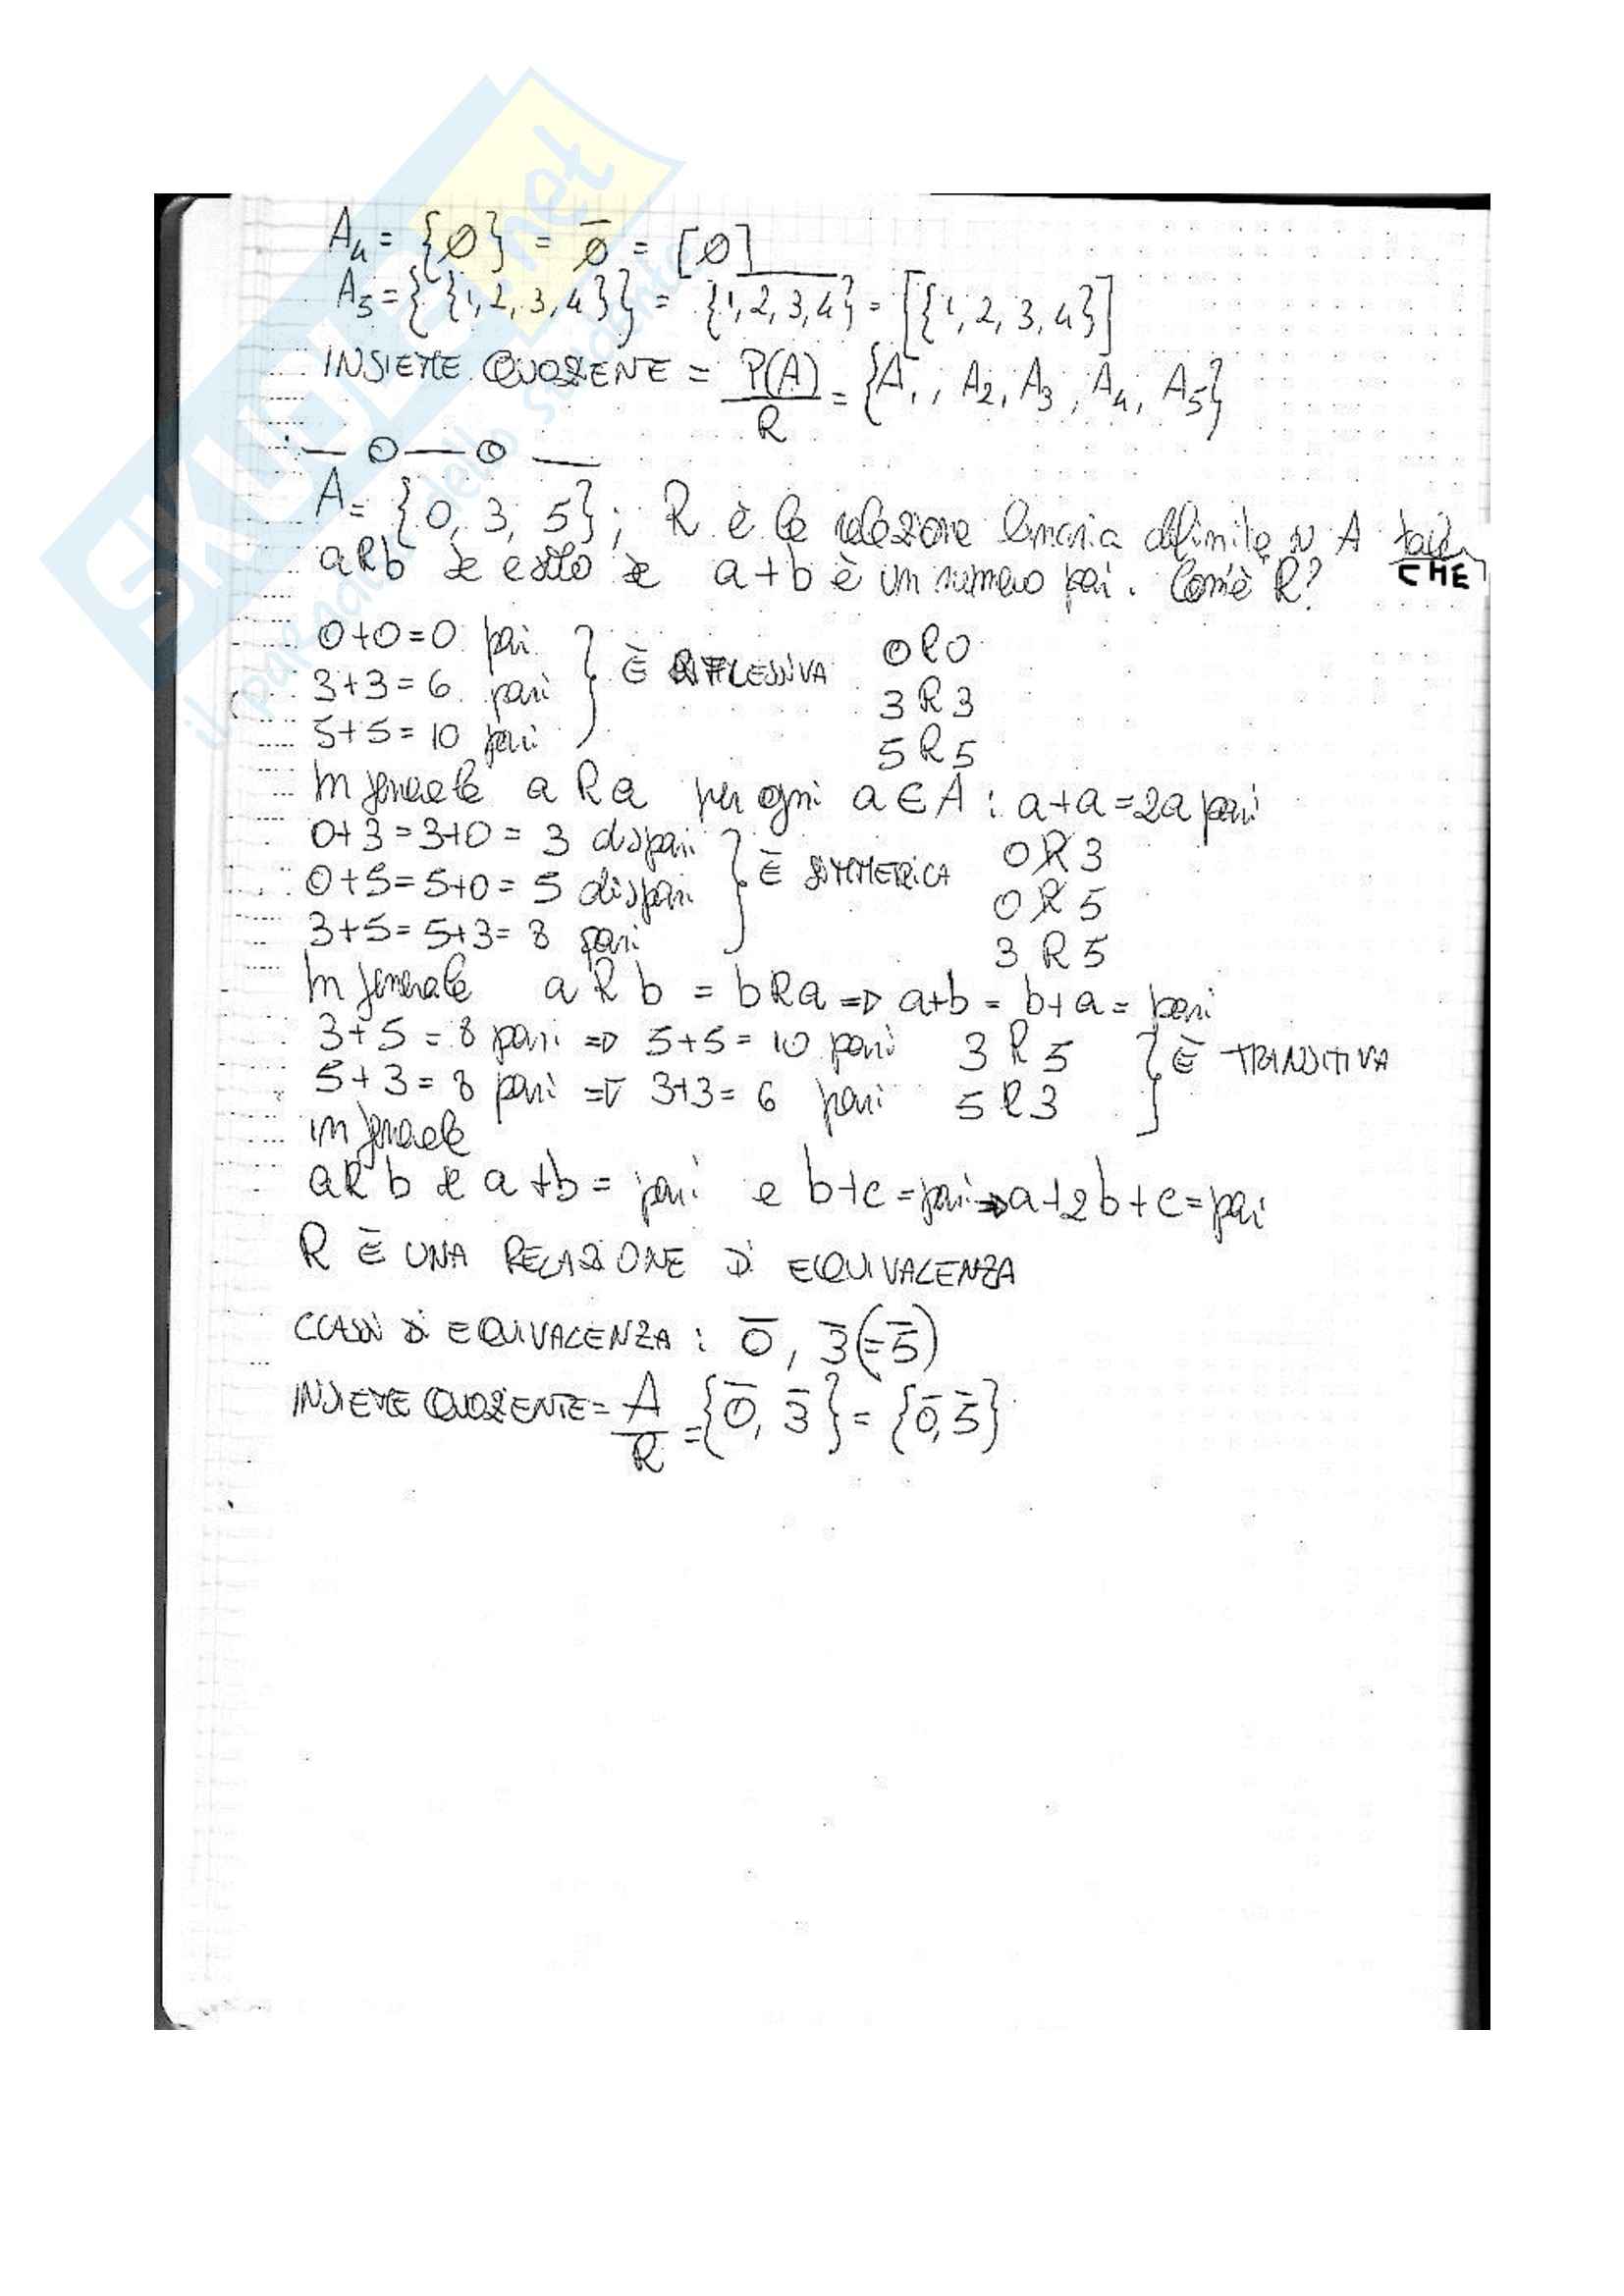 A₄ = {∅} = ∅̅ = [∅]
A₅ = {{1, 2, 3, 4}} = \overline{{1, 2, 3, 4}} = [{1, 2, 3, 4}]
INSIEME QUOZIENTE = P(A)/R = {A₁, A₂, A₃, A₄, A₅}
— o — o —
A = {0, 3, 5}; R è la relazione binaria definita su A tale CHE
aRb se e solo se a+b è un numero pari. Com'è R?
0+0=0 pari } È RIFLESSIVA 0R0
3+3=6 pari 3R3
5+5=10 pari 5R5
In generale aRa per ogni a∈A: a+a=2a pari
0+3=3+0=3 dispari } È SIMMETRICA 0R̸3
0+5=5+0=5 dispari 0R̸5
3+5=5+3=8 pari 3R5
In generale aRb = bRa ⇒ a+b = b+a = pari
3+5=8 pari ⇒ 5+5=10 pari 3R5 } È TRANSITIVA
5+3=8 pari ⇒ 3+3=6 pari 5R3
in generale
aRb se a+b = pari e b+c=pari ⇒ a+2b+c=pari
R È UNA RELAZIONE DI EQUIVALENZA
CLASSI DI EQUIVALENZA: 0̅, 3̅(=5̅)
INSIEME QUOZIENTE = A/R = {0̅, 3̅} = {0̅, 5̅}
SKUOLA.net
il paradiso dello studente